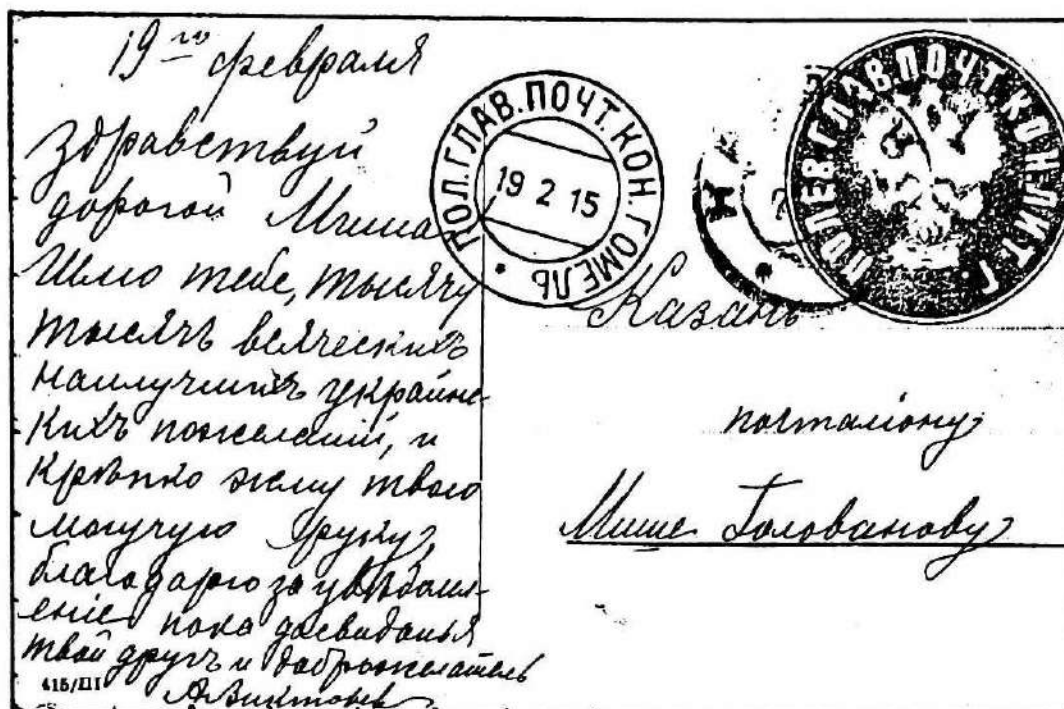 19го февраля
Здравствуй
дорогой Миша
Шлю тебе, тысячу
тысячъ всяческихъ
наилучшихъ украинс-
кихъ пожеланий, и
крѣпко жму твою
могучую руку,
благодарю за увѣдомл-
ение пока досвиданья
твой другъ и доброжелатель
А. Викторов
415/III
ПОЛ. ГЛАВ. ПОЧТ. КОН. ГОМЕЛЬ
19 2 15
ПОЛЕВ. ГЛАВ. ПОЧТ. КОН. ЛИТ. Г
Казань
почталіону
Мише Голованову